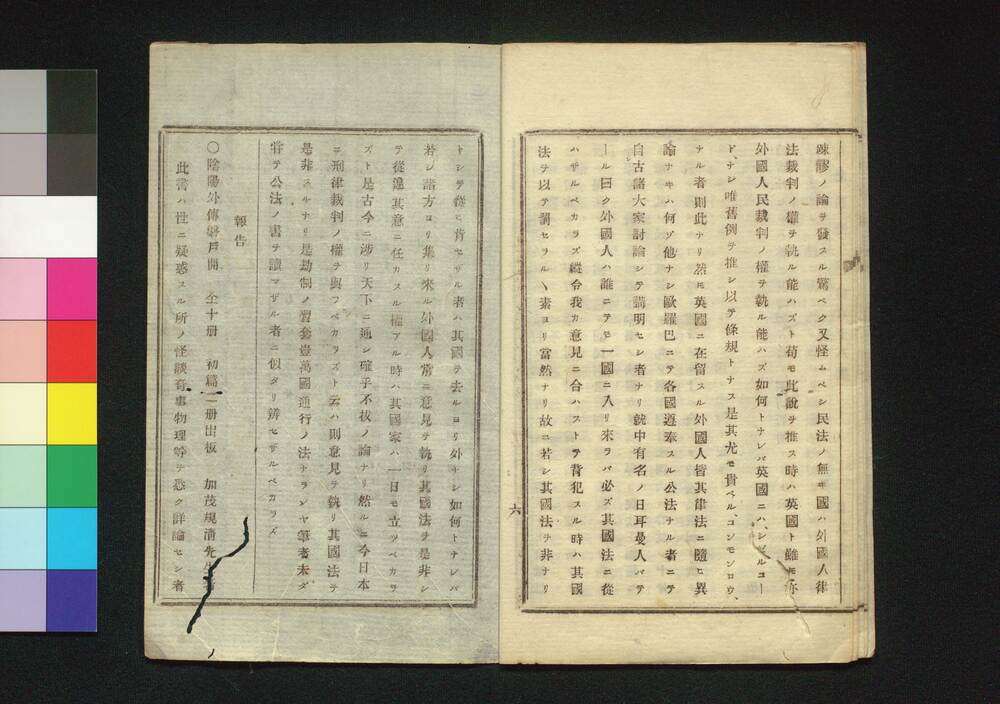 疎謬ノ論ヲ發スル驚ベク又怪ムベシ民法ノ無キ國ハ外國人律
法裁判ノ權ヲ執ル能ハズト荀モ此說ヲ推ス時ハ英國ト雖モ亦
外國人民裁判ノ權ヲ執ル能ハズ如何トナレバ英國ニハ、シビルコー
ド、ナシ唯舊例ヲ推シ以テ條規トナス是其尤モ貴ベル、コンモンロウ、
ナル者則此ナリ然モ英國ニ在留スル外國人皆其律法ニ隨ヒ異
論ナキハ何ゾ他ナシ歐羅巴ニテ各國遵奉スル公法ナル者ニテ
自古諸大家討論シテ講明セシ者ナリ就中有名ノ日耳曼人バテ
ール曰ク外國人ハ誰ニテモ一國ニ入リ來ラバ必ズ其國法ニ從
ハザルベカラズ縱令我カ意見ニ合ハストテ背犯スル時ハ其國
法ヲ以テ罰セラルヽ素ヨリ當然ナリ故ニ若シ其國法ヲ非ナリ
六
トシテ從ヒ肯セザル者ハ其國ヲ去ルヨリ外ナシ如何トナレバ
若シ諸方ヨリ集リ來ル外國人常ニ意見ヲ執リ其國法ヲ是非シ
テ從違其意ニ任カスル權アル時ハ其國家ハ一日モ立ツベカラ
ズト是古今ニ涉リ天下ニ通シ確乎不拔ノ論ナリ然ルニ今日本
ニ刑律裁判ノ權ヲ與フベカラズト云ハ則意見ヲ執リ其國法ヲ
是非スルナリ是劫制ノ習套豈萬國通行ノ法ナランヤ筆者未ダ
甞テ公法ノ書ヲ讀マザル者ニ似タリ辨セザルベカラズ
報告
〇陰陽外傳磐戸開 仝十册 初篇二册出板 加茂規淸先生著
此書ハ世ニ疑惑スル所ノ怪談奇事物理等ヲ悉ク詳論セシ者